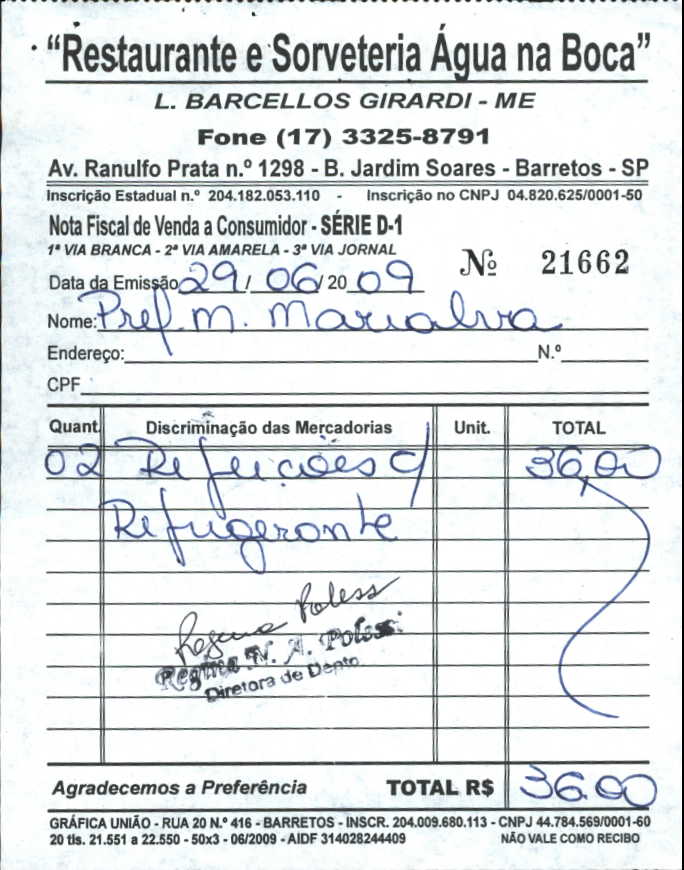 "Restaurante e Sorveteria Água na Boca"
L. BARCELLOS GIRARDI - ME
Fone (17) 3325-8791
Av. Ranulfo Prata n.º 1298 - B. Jardim Soares - Barretos - SP
Inscrição Estadual n.º 204.182.053.110 - Inscrição no CNPJ 04.820.625/0001-50
Nota Fiscal de Venda a Consumidor - SÉRIE D-1
1ª VIA BRANCA - 2ª VIA AMARELA - 3ª VIA JORNAL
Nº 21662
Data da Emissão 29/06/2009
Nome: Pref. M. Marialva
Endereço: N.º
CPF
Quant. Discriminação das Mercadorias Unit. TOTAL
02 Refeições c/ 36,00
Refrigerante
Regina Poless
Regina N. A. Poless
Diretora de Depto
Agradecemos a Preferência TOTAL R$ 36.00
GRÁFICA UNIÃO - RUA 20 N.º 416 - BARRETOS - INSCR. 204.009.680.113 - CNPJ 44.784.569/0001-60
20 tls. 21.551 a 22.550 - 50x3 - 06/2009 - AIDF 314028244409 NÃO VALE COMO RECIBO